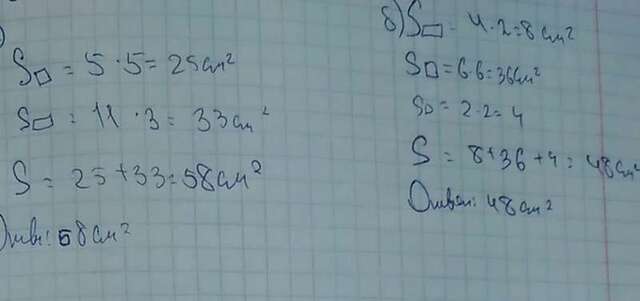 )
S□ = 5 · 5 = 25см²
S▭ = 11 · 3 = 33см²
S = 25 + 33 = 58см²
Ответ: 58см²
б) S▭ = 4 · 2 = 8см²
S□ = 6·6 = 36см²
S□ = 2 · 2 = 4
S = 8 + 36 + 4 = 48см²
Ответ: 48см²